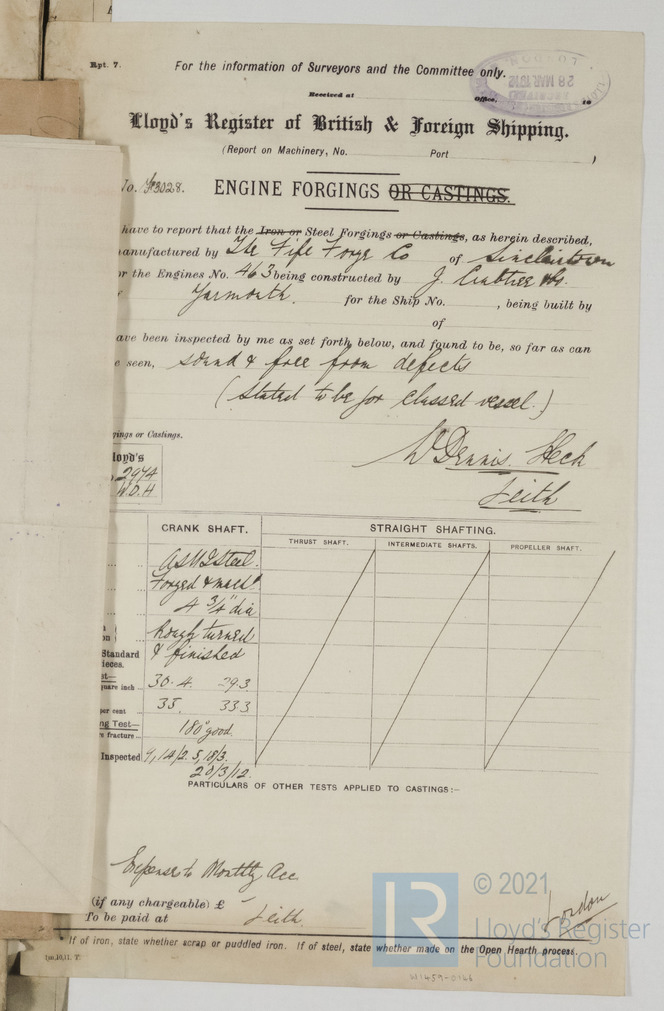 Rpt. 7.
For the information of Surveyors and the Committee only.
28 MAR 1912
Received at Office, 19
Lloyd's Register of British & Foreign Shipping.
(Report on Machinery, No. Port )
No. 3028. ENGINE FORGINGS OR CASTINGS.
have to report that the Iron or Steel Forgings or Castings, as herein described,
anufactured by The Fife Forge Co of Sinclairtown
or the Engines No. 463 being constructed by J. Crabtree & Co.
Yarmouth. for the Ship No. , being built by
of
ave been inspected by me as set forth below, and found to be, so far as can
e seen, sound & free from defects
(stated to be for classed vessel.)
rgings or Castings.
W Dennis Heck
Leith
loyd's
2974
W.D.H
CRANK SHAFT. STRAIGHT SHAFTING.
THRUST SHAFT. INTERMEDIATE SHAFTS. PROPELLER SHAFT.
Steel.
Forged & mach
4 3/4" dia
Rough turned
Standard & finished
ieces.
st—
quare inch 30.4. 29.3
per cent 35. 33.3
ng Test—
re fracture 180° good.
Inspected 9, 14/2. 5, 18/3.
20/3/12.
PARTICULARS OF OTHER TESTS APPLIED TO CASTINGS:—
Expenses to Monthly Acc
(if any chargeable) £
To be paid at Leith
London
* If of iron, state whether scrap or puddled iron. If of steel, state whether made on the Open Hearth process.
LR
© 2021
Lloyd's Register
Foundation
W1459-0146